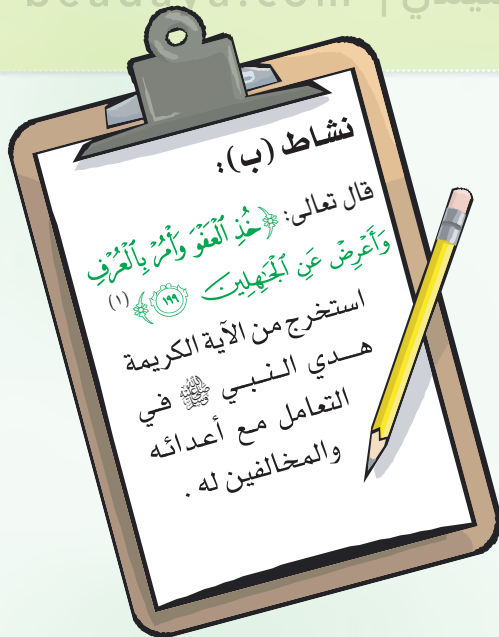 beadaya.com |
نشاط (ب):
قال تعالى: ﴿خُذِ ٱلْعَفْوَ وَأْمُرْ بِٱلْعُرْفِ
وَأَعْرِضْ عَنِ ٱلْجَٰهِلِينَ ١٩٩﴾ (١)
استخرج من الآية الكريمة
هـدي الـنـبـي ﷺ في
التعامل مع أعدائه
والمخالفين له .